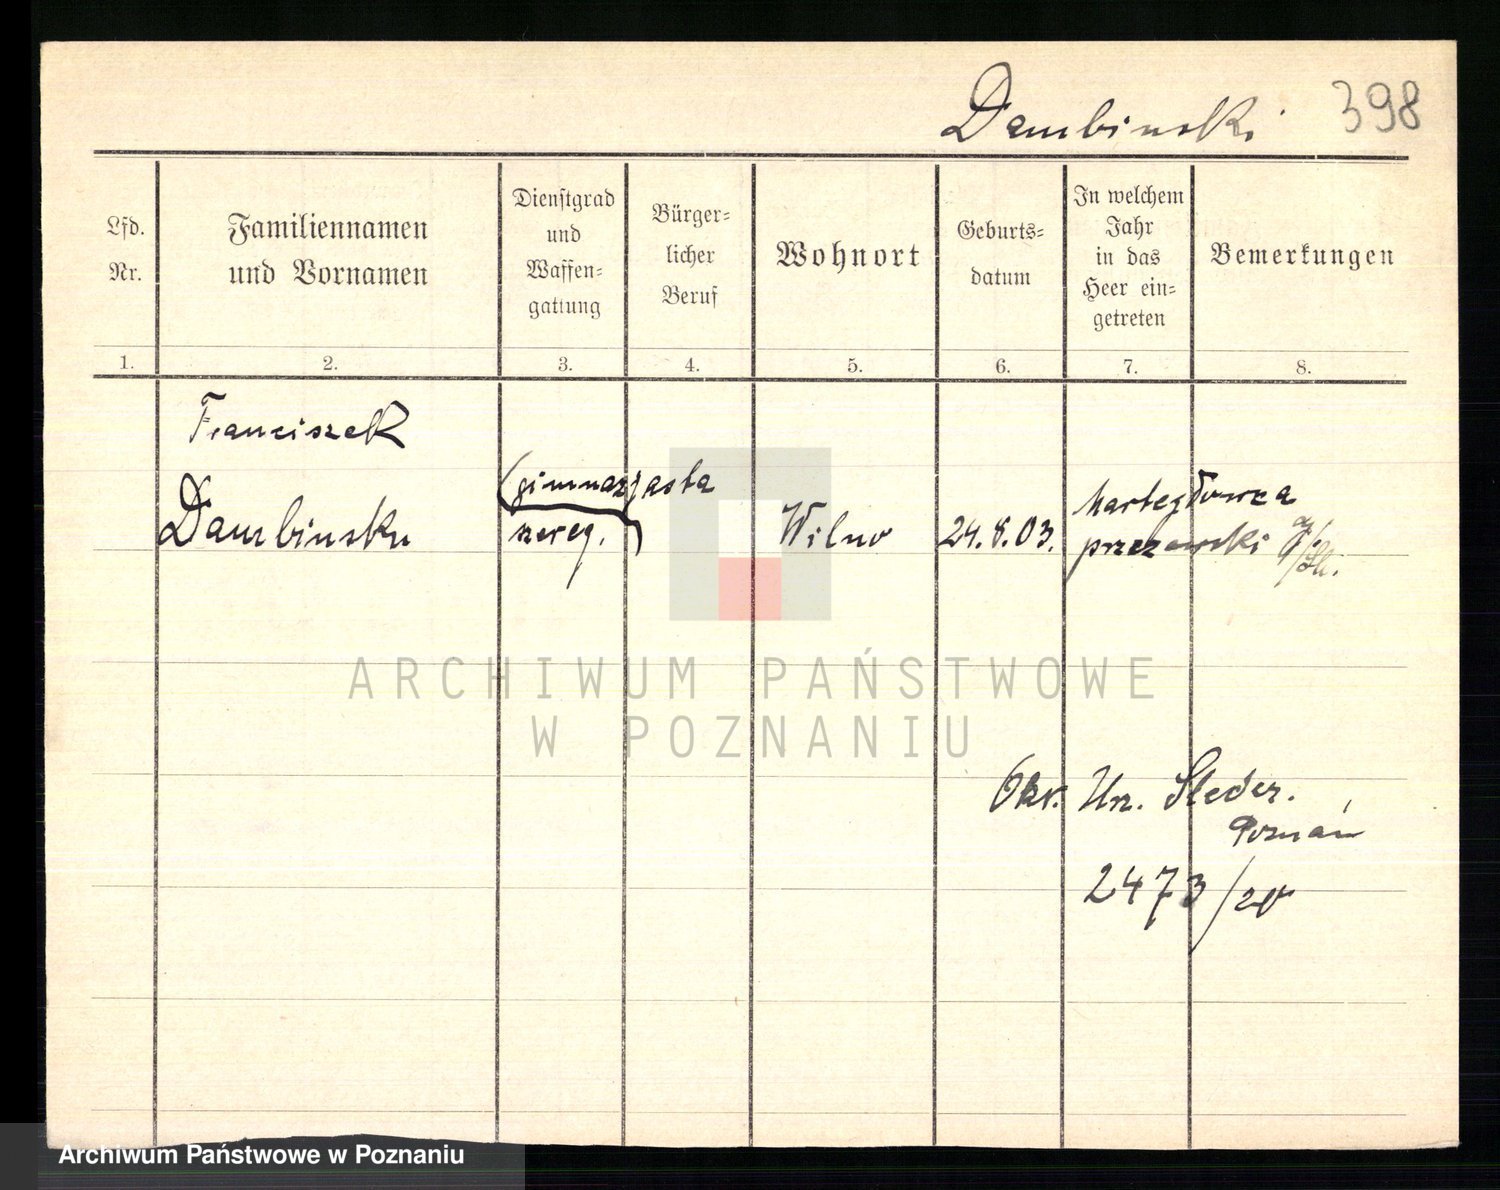 Dambinski 398
Lfd. Nr.
Familiennamen und Vornamen
Dienstgrad und Waffen-gattung
Bürger-licher Beruf
Wohnort
Geburts-datum
In welchem Jahr in das Heer ein-getreten
Bemerkungen
1. 2. 3. 4. 5. 6. 7. 8.
Franciszek
(gimnazjasta
Dambinsku szereg. ) Wilno 24.8.03.
ARCHIWUM PAŃSTWOWE
W POZNANIU
Okr. Urz. Śledcz.
Poznań
2473/20
Archiwum Państwowe w Poznaniu